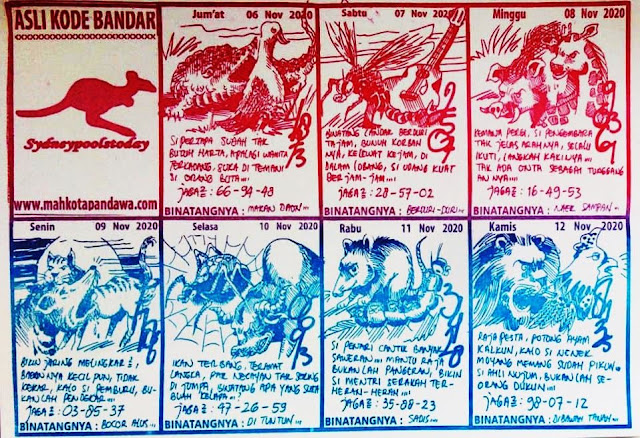 ASLI KODE BANDAR
Sydneypoolstoday
www.mahkotapandawa.com
Jum'at 06 Nov 2020
SI PERTAPA SUDAH TAK
BUTUH HARTA, APALAGI WANITA
TERKADANG, SUKA DI TEMANI
DI ORANG BUTA...
JAGA2: 66-94-48
BINATANGNYA : MAKAN DAUN...
Sabtu 07 Nov 2020
BINATANG LANDAK BERDURI
TAJAM, BUNUH KORBAN
NYA, KELEWAT KEJAM, DI
DALAM LOBANG, SI UDANG KUAT
BERJAM-JAM...
JAGA2: 28-57-02
BINATANGNYA : BERDURI-DURI...
Minggu 08 Nov 2020
KEMANA PERGI, SI PENGEMBARA
TAK JELAS ARAHNYA, SELALU
IKUTI, LANGKAH KAKINYA...
TAK ADA ONTA SEBAGAI TUNGGANG
AN NYA...
JAGA2: 16-49-53
BINATANGNYA : NAEK
Senin 09 Nov 2020
BIKIN JARING MELINGKAR2,
BADANNYA KECIL PUN, TIDAK
KEKAR, KALO SI PEMBURU, BU-
KANLAH PENDEKAR...
JAGA2: 03-85-37
BINATANGNYA : BOCOR ALUS...
Selasa 10 Nov 2020
IKAN TERBANG, TERAMAT
LANGKA, PAK NELAYAN TAK SERING
DI JUMPA, BINATANG APA YANG SUKA
BUAH KELAPA...?
JAGA2: 97-26-59
BINATANGNYA : DI TUNTUN...
Rabu 11 Nov 2020
SI PENARI CANTIK BANYAK
SAWERAN... MANTU RAJA
BUKANLAH PANGERAN, BIKIN
SI MENTRI SERAKAH TER-
HERAN-HERAN...
JAGA2: 35-88-23
BINATANGNYA : SADIS...
Kamis 12 Nov 2020
RAJA PESTA, POTONG AYAM
KALKUN, KALO SI NENEK
MOYANG MEMANG SUDAH PIKUN.
SI AHLI NUJUM, BUKANLAH SE-
ORANG DUKUN...
JAGA2: 98-07-12
BINATANGNYA : DIBAWAH TANAH...